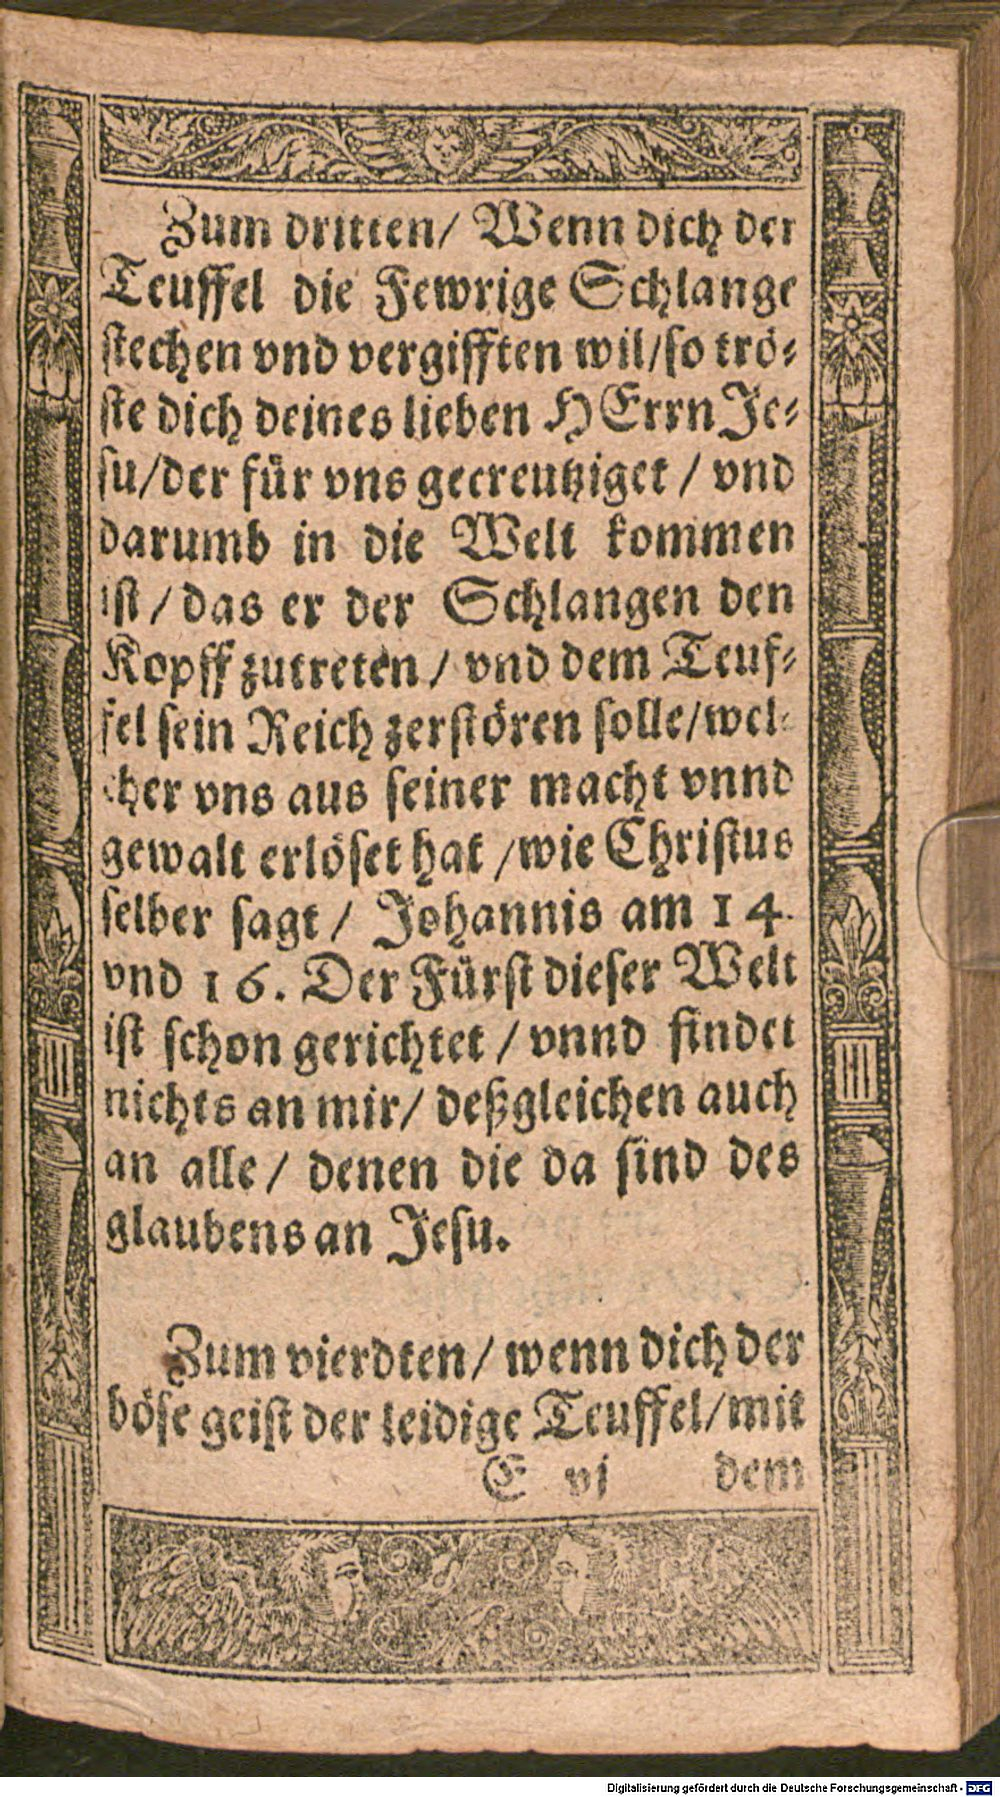 Zum dritten/ Wenn dich der
Teuffel die Fewrige Schlange
stechen vnd vergifften wil/so trö⸗
ste dich deines lieben HErrn Je⸗
su/der für vns gecreutziget / vnd
darumb in die Welt kommen
ist / das er der Schlangen den
Kopff zutreten / vnd dem Teuf⸗
fel sein Reich zerstören solle/wel⸗
cher vns aus seiner macht vnnd
gewalt erlöset hat /wie Christus
selber sagt / Johannis am 14.
vnd 16. Der Fürst dieser Welt
ist schon gerichtet / vnnd findet
nichts an mir/ deßgleichen auch
an alle/ denen die da sind des
glaubens an Jesu.
Zum vierdten/ wenn dich der
böse geist der leidige Teuffel/mit
E vj dem
Digitalisierung gefördert durch die Deutsche Forschungsgemeinschaft - DFG